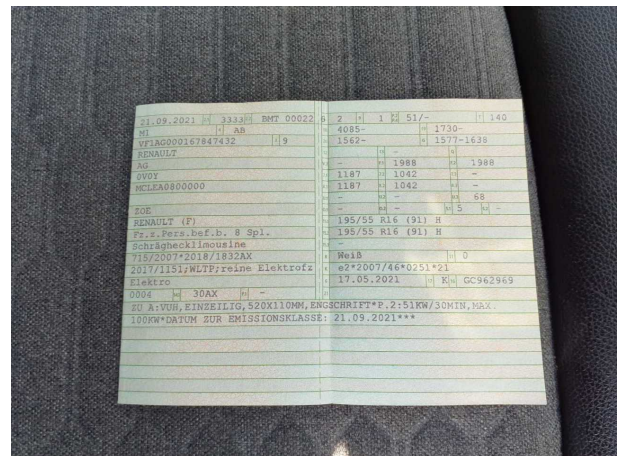 21.09.2021 3333 BMT 00022 6
M1 AB
VF1AG000167847432 9
RENAULT
AG
0V0Y
MCLEA0800000
ZOE
RENAULT (F)
Fz.z.Pers.bef.b. 8 Spl.
Schräghecklimousine
715/2007*2018/1832AX
2017/1151;WLTP;reine Elektrofz
Elektro
0004 30AX -
2 1 51/- 140
4085- 1730-
1562- 1577-1638
- -
- 1988 1988
1187 1042 -
1187 1042 -
- - 68
- - 5 -
195/55 R16 (91) H
195/55 R16 (91) H
-
Weiß 0
e2*2007/46*0251*21
17.05.2021 K GC962969
ZU A:VUH,EINZEILIG,520X110MM,ENGSCHRIFT*P.2:51KW/30MIN,MAX.
100KW*DATUM ZUR EMISSIONSKLASSE: 21.09.2021***